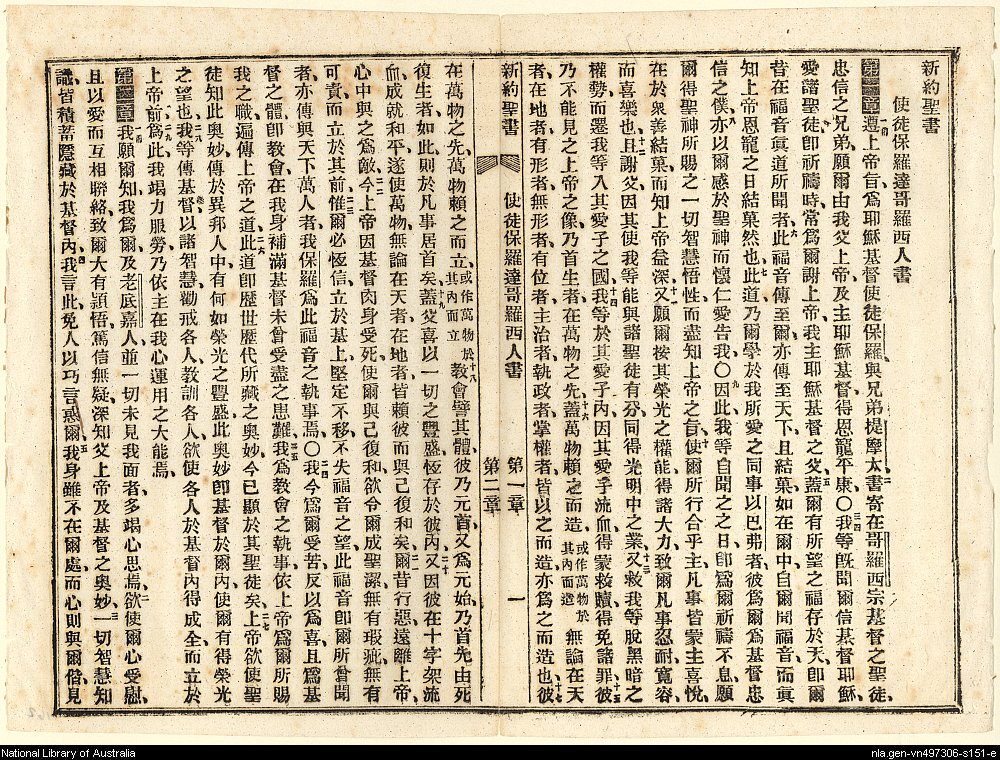 新約聖書
使徒保羅達哥羅西人書
第一章遵上帝旨爲耶穌基督使徒保羅與兄弟提摩太書寄在哥羅西宗基督之聖徒
忠信之兄弟願爾由我父上帝及主耶穌基督得恩寵平康〇我等旣聞爾信基督耶穌
愛諸聖徒卽祈禱時常爲爾謝上帝我主耶穌基督之父蓋爾有所望之福存於天卽爾
昔在福音眞道所聞者此福音傳至爾亦傳至天下且結菓如在爾中自爾聞福音而眞
知上帝恩寵之日結菓然也此道乃爾學於我所愛之同事以巴弗者彼爲爾爲基督忠
信之僕亦以爾感於聖神而懷仁愛告我〇因此我等自聞之之日卽爲爾祈禱不息願
爾得聖神所賜之一切智慧悟性而盡知上帝之旨使爾所行合乎主凡事皆蒙主喜悅
在於衆善結菓而知上帝益深又願爾按其榮光之權能得諸大力致爾凡事忍耐寬容
而喜樂也且謝父因其使我等能與諸聖徒有分同得光明中之業又救我等脫黑暗之
權勢而遷我等入其愛子之國我等於其愛子內因其愛子流血得蒙救贖得免諸罪彼
乃不能見之上帝之像乃首生者在萬物之先蓋萬物賴之而造或作萬物於其內而造無論在天
者在地者有形者無形者有位者主治者執政者掌權者皆以之而造亦爲之而造也彼
新約聖書 使徒保羅達哥羅西人書 第一章 第二章 一
在萬物之先萬物賴之而立或作萬物於其內而立教會譬其體彼乃元首又爲元始乃首先由死
復生者如此則於凡事居首矣蓋父喜以一切之豐盛恆存於彼內又因彼在十字架流
血成就和平遂使萬物無論在天者在地者皆賴彼而與己復和矣爾昔行惡遠離上帝
心中與之爲敵今上帝因基督肉身受死使爾與己復和欲令爾成聖潔無有瑕疵無有
可責而立於其前惟爾必恆信立於基上堅定不移不失福音之望此福音卽爾所曾聞
者亦傳與天下萬人者我保羅爲此福音之執事焉〇我今爲爾受苦反以爲喜且爲基
督之體卽教會在我身補滿基督未曾受盡之患難我爲教會之執事依上帝爲爾所賜
我之職遍傳上帝之道此道卽歷世歷代所藏之奧妙今已顯於其聖徒矣上帝欲使聖
徒知此奧妙傳於異邦人中有何如榮光之豐盛此奧妙卽基督於爾內使爾有得榮光
之望也我等傳基督以諸智慧勸戒各人教訓各人欲使各人於基督內得成全而立於
上帝前爲此我竭力服勞乃依主在我心運用之大能焉
第二章我願爾知我爲爾及老底嘉人並一切未見我面者多竭心思焉欲使爾心受慰
且以愛而互相聯絡致爾大有穎悟篤信無疑深知父上帝及基督之奧妙一切智慧知
識皆積蓄隱藏於基督內我言此免人以巧言惑爾我身雖不在爾處而心則與爾偕見
National Library of Australia
nla.gen-vn497306-s151-e